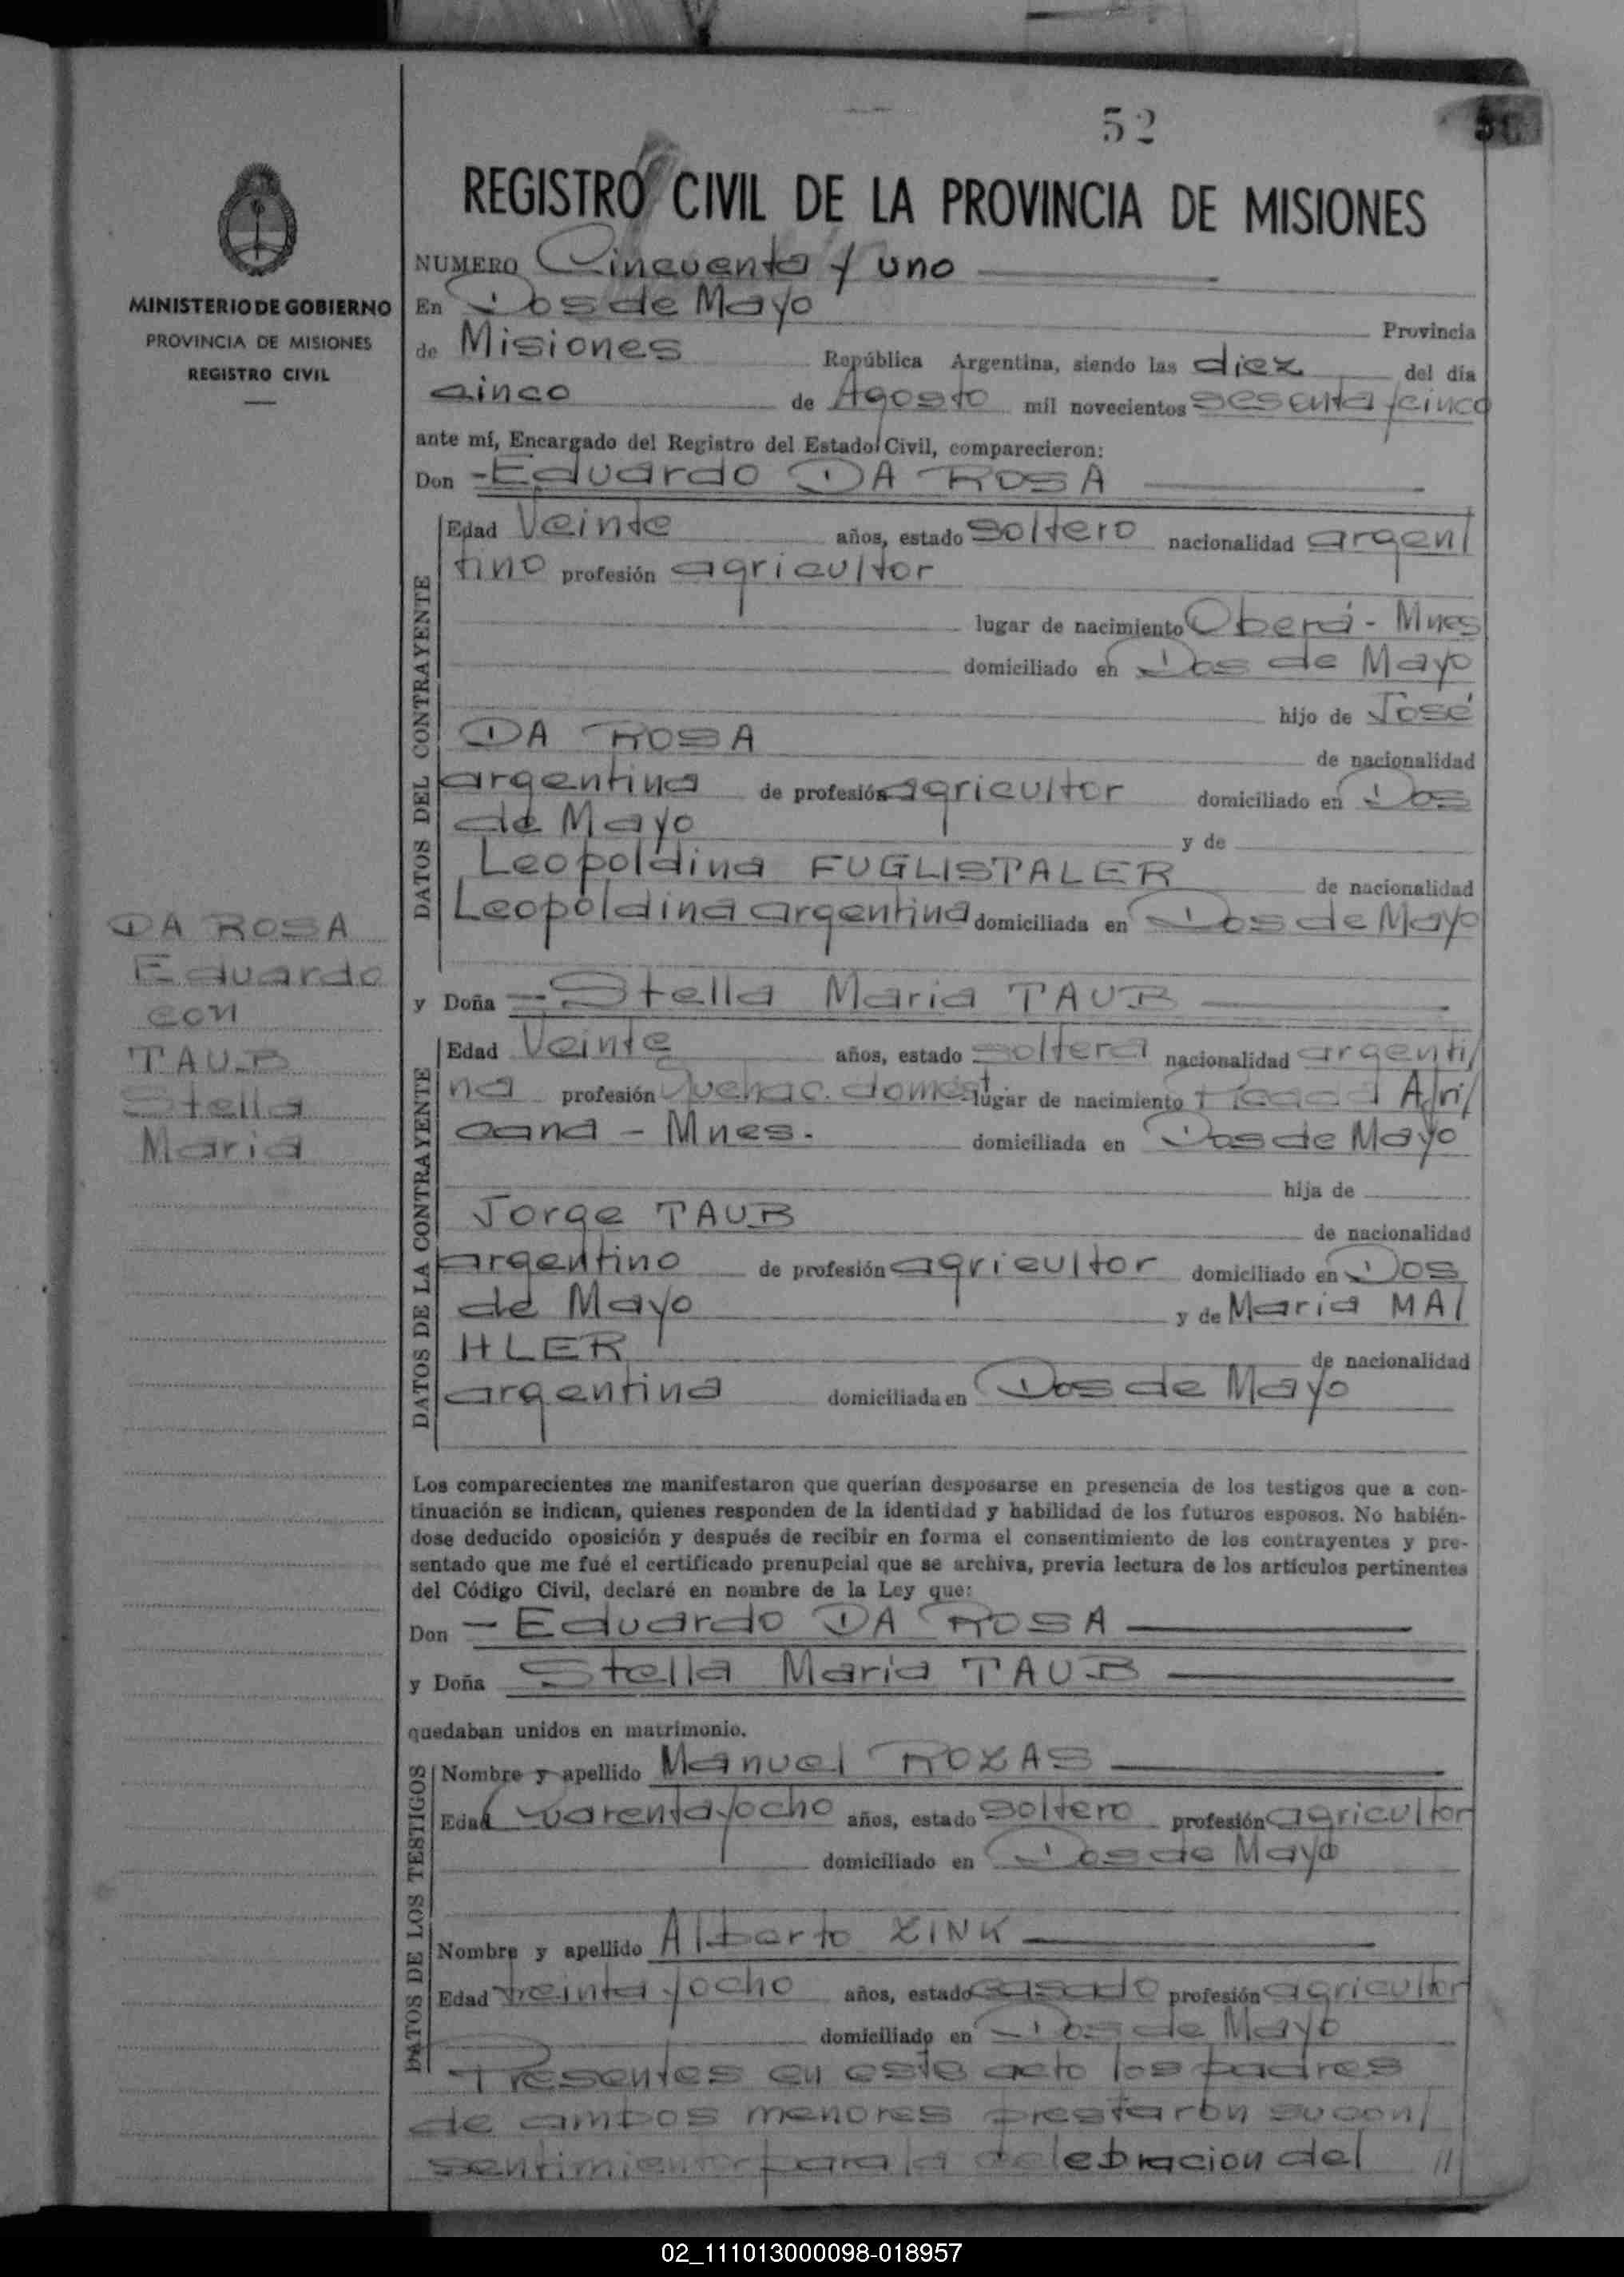 52
REGISTRO CIVIL DE LA PROVINCIA DE MISIONES
MINISTERIO DE GOBIERNO
PROVINCIA DE MISIONES
REGISTRO CIVIL
NUMERO Cincuenta y uno
En Dos de Mayo Provincia
de Misiones República Argentina, siendo las diez del día
cinco de Agosto mil novecientos sesenta y cinco
ante mí, Encargado del Registro del Estado Civil, comparecieron:
Don - Eduardo DA ROSA
DATOS DEL CONTRAYENTE
Edad Veinte años, estado soltero nacionalidad argen/
tino profesión agricultor
lugar de nacimiento Oberá - Mnes
domiciliado en Dos de Mayo
hijo de José
DA ROSA
de nacionalidad
argentina de profesión agricultor domiciliado en Dos
de Mayo y de
Leopoldina FUGLISTALER de nacionalidad
Leopoldina argentina domiciliada en Dos de Mayo
DA ROSA
Eduardo
con
TAUB
Stella
Maria
y Doña - Stella Maria TAUB
DATOS DE LA CONTRAYENTE
Edad Veinte años, estado soltera nacionalidad argenti/
na profesión Quehac. domest lugar de nacimiento Picada Afri/
cana - Mnes. domiciliada en Dos de Mayo
hija de
Jorge TAUB
de nacionalidad
argentino de profesión agricultor domiciliado en Dos
de Mayo y de Maria MA/
HLER de nacionalidad
argentina domiciliada en Dos de Mayo
Los comparecientes me manifestaron que querían desposarse en presencia de los testigos que a con-
tinuación se indican, quienes responden de la identidad y habilidad de los futuros esposos. No habién-
dose deducido oposición y después de recibir en forma el consentimiento de los contrayentes y pre-
sentado que me fué el certificado prenupcial que se archiva, previa lectura de los artículos pertinentes
del Código Civil, declaré en nombre de la Ley que:
Don - Eduardo DA ROSA
y Doña Stella Maria TAUB
quedaban unidos en matrimonio.
DATOS DE LOS TESTIGOS
Nombre y apellido Manuel ROZAS
Edad Cuarenta y ocho años, estado soltero profesión agricultor
domiciliado en Dos de Mayo
Nombre y apellido Alberto ZINK
Edad treinta y ocho años, estado casado profesión agricultor
domiciliado en Dos de Mayo
Presentes en este acto los padres
de ambos menores prestaron su con/
sentimiento para la celebracion del //
02_111013000098-018957